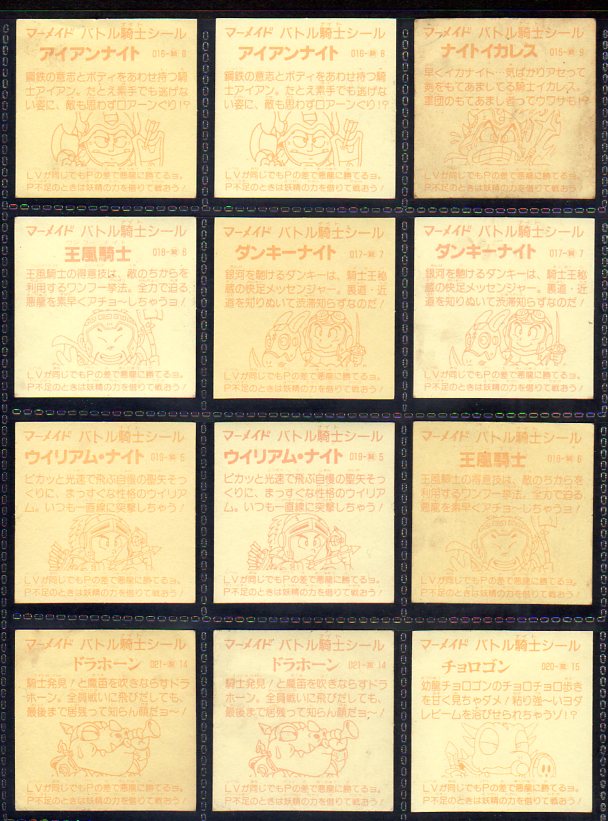 マーメイド バトル騎士シール
アイアンナイト 016-騎 8
鋼鉄の意志とボディをあわせ持つ騎
士アイアン。たとえ素手でも逃げな
い姿に、敵も思わずロアーンぐり!?
LVが同じでもPの差で悪龍に勝てるヨ。
P不足のときは妖精の力を借りて戦おう!
マーメイド バトル騎士シール
アイアンナイト 016-騎 8
鋼鉄の意志とボディをあわせ持つ騎
士アイアン。たとえ素手でも逃げな
い姿に、敵も思わずロアーンぐり!?
LVが同じでもPの差で悪龍に勝てるヨ。
P不足のときは妖精の力を借りて戦おう!
マーメイド バトル騎士シール
ナイトイカレス 015-騎 9
早くイカナイト…気ばかりアセって
剣をもてあましてる騎士イカレス。
軍団のもてあまし者ってウワサも!?
LVが同じでもPの差で悪龍に勝てるヨ。
P不足のときは妖精の力を借りて戦おう!
マーメイド バトル騎士シール
王風騎士 018-騎 6
王風騎士の得意技は、敵のちからを
利用するワンフー拳法。全力で迫る
悪龍を素早くアチョ〜しちゃうョ!
LVが同じでもPの差で悪龍に勝てるヨ。
P不足のときは妖精の力を借りて戦おう!
マーメイド バトル騎士シール
ダンキーナイト 017-騎 7
銀河を駆けるダンキーは、騎士王秘
蔵の快足メッセンジャー。裏道・近
道を知りぬいて渋滞知らずなのだ!
LVが同じでもPの差で悪龍に勝てるヨ。
P不足のときは妖精の力を借りて戦おう!
マーメイド バトル騎士シール
ダンキーナイト 017-騎 7
銀河を駆けるダンキーは、騎士王秘
蔵の快足メッセンジャー。裏道・近
道を知りぬいて渋滞知らずなのだ!
LVが同じでもPの差で悪龍に勝てるヨ。
P不足のときは妖精の力を借りて戦おう!
マーメイド バトル騎士シール
ウイリアム・ナイト 019-騎 5
ピカッと光速で飛ぶ自慢の聖矢そっ
くりに、まっすぐな性格のウイリア
ム。いつも一直線に突撃しちゃう!
LVが同じでもPの差で悪龍に勝てるヨ。
P不足のときは妖精の力を借りて戦おう!
マーメイド バトル騎士シール
ウイリアム・ナイト 019-騎 5
ピカッと光速で飛ぶ自慢の聖矢そっ
くりに、まっすぐな性格のウイリア
ム。いつも一直線に突撃しちゃう!
LVが同じでもPの差で悪龍に勝てるヨ。
P不足のときは妖精の力を借りて戦おう!
マーメイド バトル騎士シール
王風騎士 018-騎 6
王風騎士の得意技は、敵のちからを
利用するワンフー拳法。全力で迫る
悪龍を素早くアチョ〜しちゃうョ!
LVが同じでもPの差で悪龍に勝てるヨ。
P不足のときは妖精の力を借りて戦おう!
マーメイド バトル騎士シール
ドラホーン 021-龍 14
騎士発見!と魔笛を吹きならすドラ
ホーン。全員戦いに飛びだしても、
最後まで居残って知らん顔だョ〜!
LVが同じでもPの差で悪龍に勝てるヨ。
P不足のときは妖精の力を借りて戦おう!
マーメイド バトル騎士シール
ドラホーン 021-龍 14
騎士発見!と魔笛を吹きならすドラ
ホーン。全員戦いに飛びだしても、
最後まで居残って知らん顔だョ〜!
LVが同じでもPの差で悪龍に勝てるヨ。
P不足のときは妖精の力を借りて戦おう!
マーメイド バトル騎士シール
チョロゴン 020-龍 15
幼龍チョロゴンのチョロチョロ歩き
を甘く見ちゃダメ!粘り強〜いヨダ
レビームを浴びせられちゃうゾ!?
LVが同じでもPの差で悪龍に勝てるヨ。
P不足のときは妖精の力を借りて戦おう!